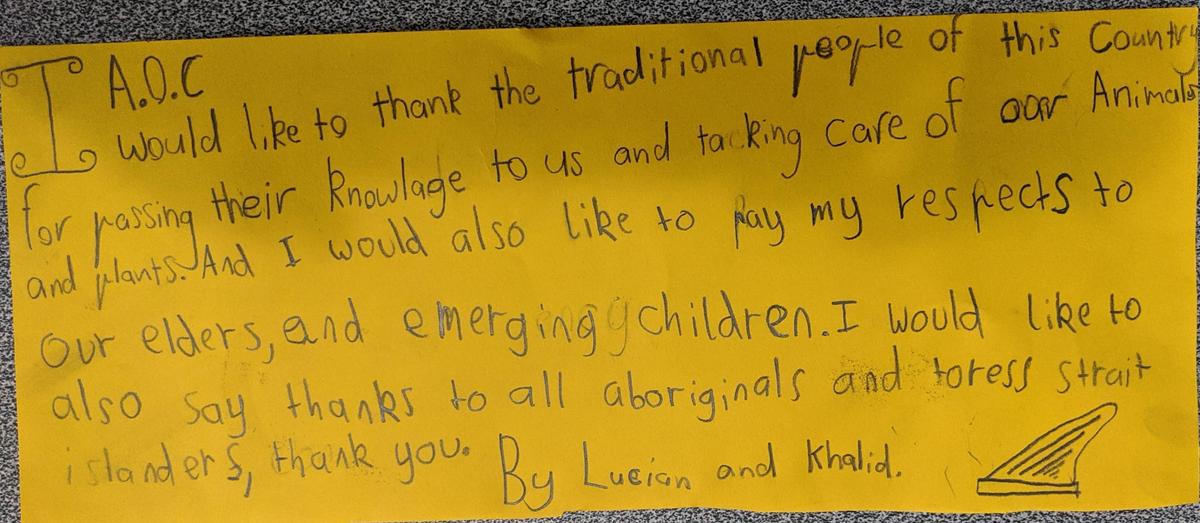 A.O.C
I would like to thank the traditional people of this Country
for passing their knowlage to us and tacking care of oar Animals
and plants. And I would also like to pay my respects to
our elders, and emerging children. I would like to
also say thanks to all aboriginals and toress strait
islanders, thank you. By Lucian and Khalid.